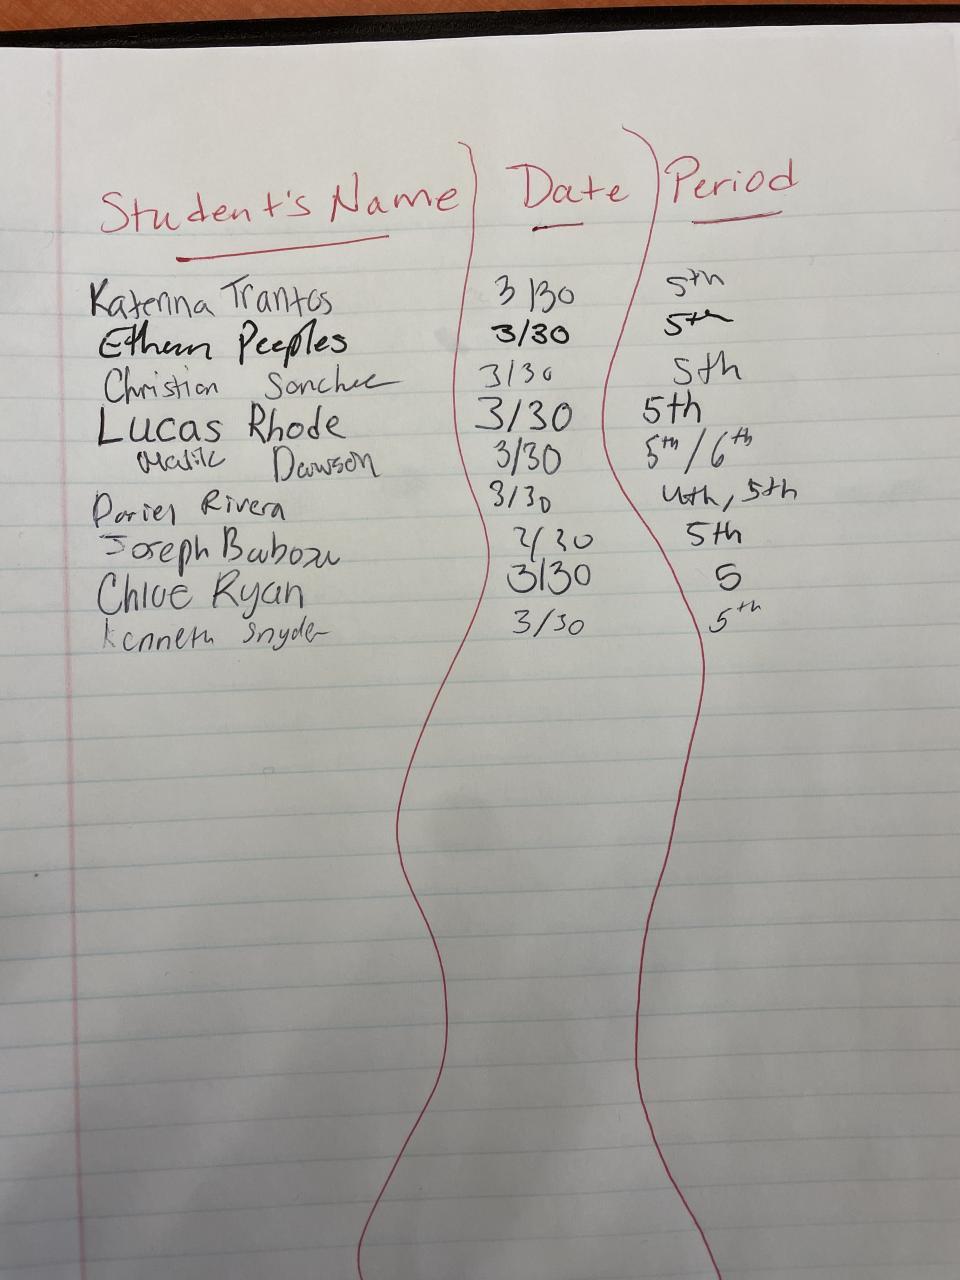 Student's Name Date Period
Katerina Trantos 3/30 5th
Ethan Peeples 3/30 5th
Christian 3/30 5th
Lucas Rhode 3/30 5th
Malik Dawson 3/30 5th/6th
Rivera 3/30 4th, 5th
Joseph 3/30 5th
Chloe Ryan 3/30 5
Kenneth Snyder 3/30 5th